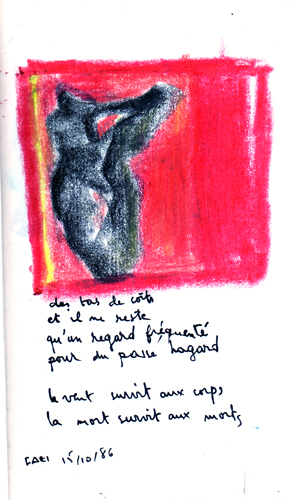 des bas de côté
et il ne reste
qu'un regard fréquenté
pour du passé hagard
le vent survit aux corps
la mort survit aux morts
15/10/86